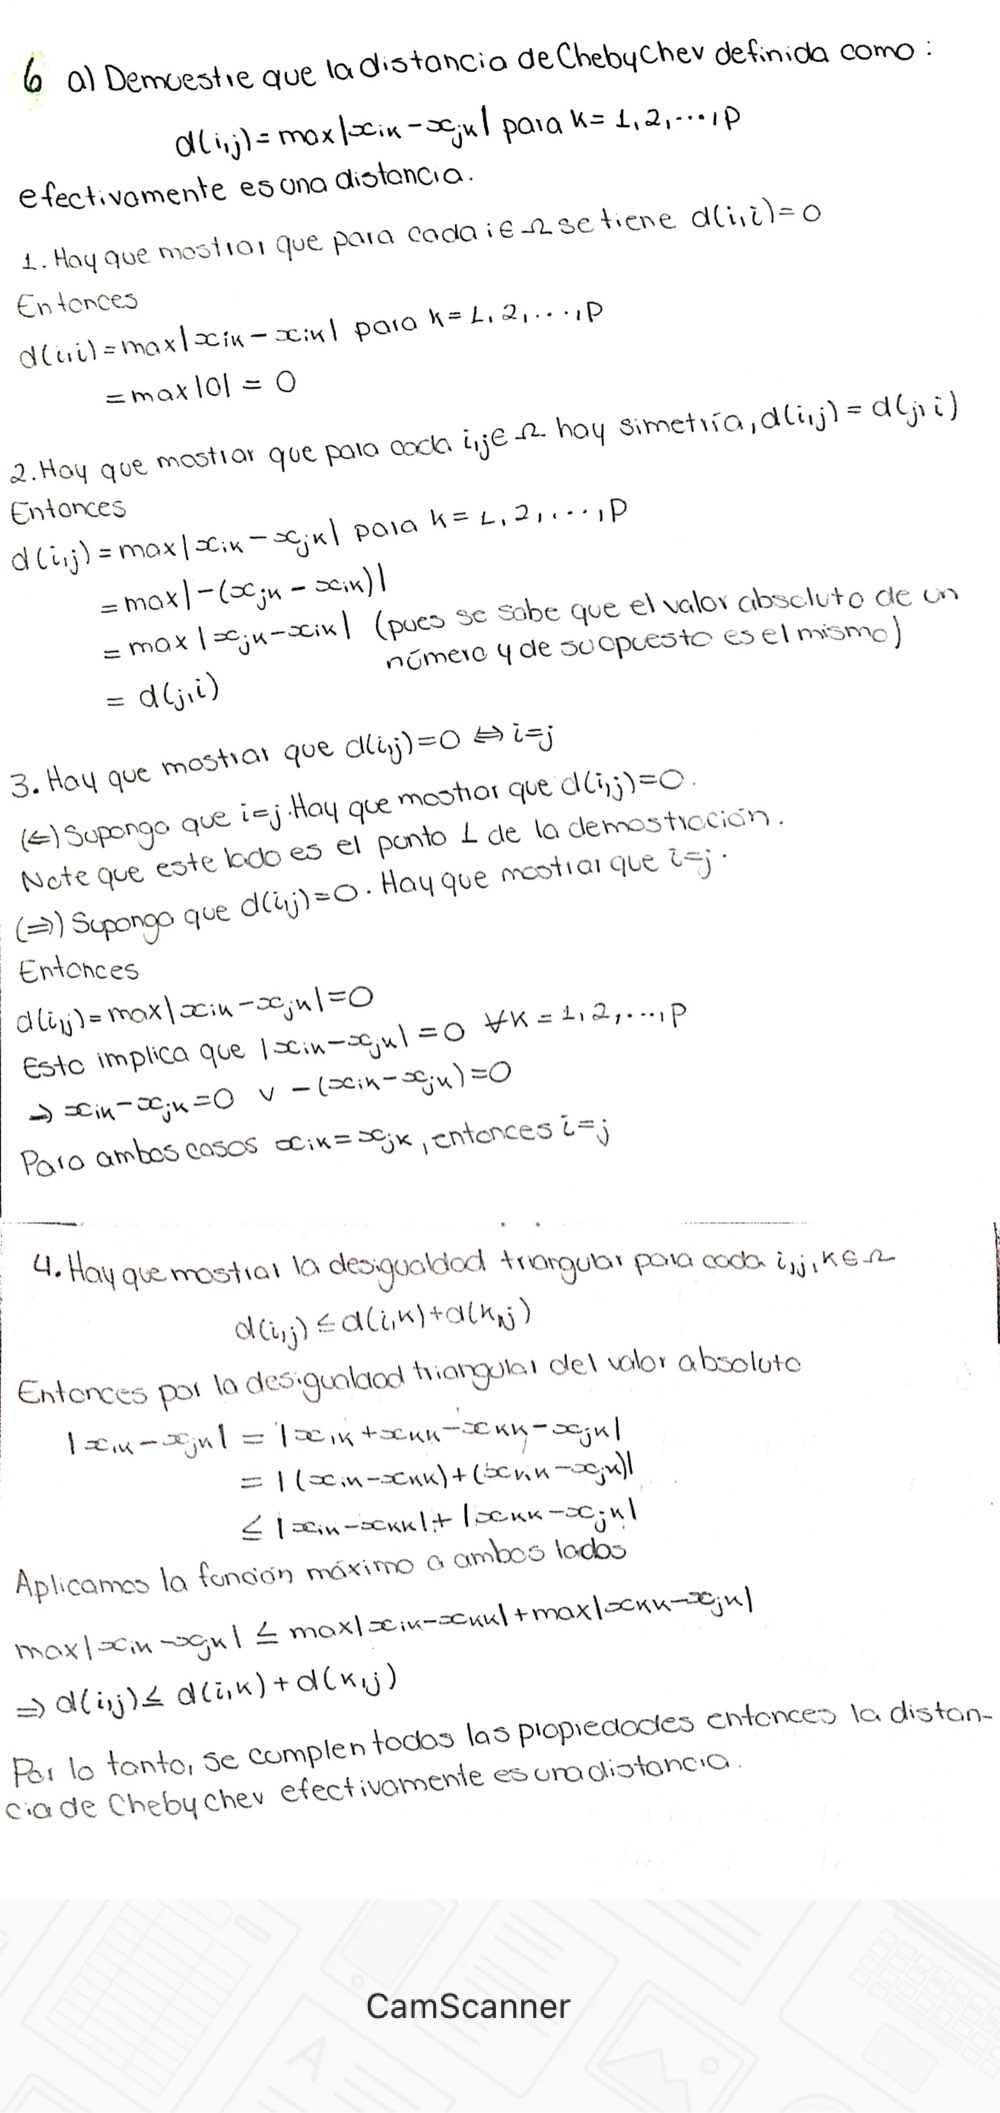 6 a) Demuestre que la distancia de Chebychev definida como:
d(i,j)=max|xik-xjk| para k=1,2,...,p
efectivamente es una distancia.
1. Hay que mostrar que para cada i∈Ω se tiene d(i,i)=0
Entonces
d(i,i)=max|xik-xik| para k=1,2,...,p
=max|0| = 0
2. Hay que mostrar que para cada i,j∈Ω hay simetría, d(i,j)=d(j,i)
Entonces
d(i,j)=max|xik-xjk| para k=1,2,...,p
=max|-(xjk-xik)|
=max|xjk-xik| (pues se sabe que el valor absoluto de un
número y de su opuesto es el mismo)
= d(j,i)
3. Hay que mostrar que d(i,j)=0 ⇔ i=j
(⇐) Suponga que i=j. Hay que mostrar que d(i,j)=0.
Note que este lado es el punto 1 de la demostración.
(⇒) Suponga que d(i,j)=0. Hay que mostrar que i=j.
Entonces
d(i,j)=max|xik-xjk|=0
Esto implica que |xik-xjk|=0 ∀k=1,2,...,p
→ xik-xjk=0 ∨ -(xik-xjk)=0
Para ambos casos xik=xjk, entonces i=j
4. Hay que mostrar la desigualdad triangular para cada i,j,k∈Ω
d(i,j)≤d(i,k)+d(k,j)
Entonces por la desigualdad triangular del valor absoluto
|xik-xjk| = |xik+xkk-xkk-xjk|
= |(xik-xkk)+(xkk-xjk)|
≤ |xik-xkk|+|xkk-xjk|
Aplicamos la función máximo a ambos lados
max|xik-xjk| ≤ max|xik-xkk|+max|xkk-xjk|
⇒ d(i,j)≤ d(i,k)+d(k,j)
Por lo tanto, se cumplen todas las propiedades entonces la distan-
cia de Chebychev efectivamente es una distancia.
CamScanner